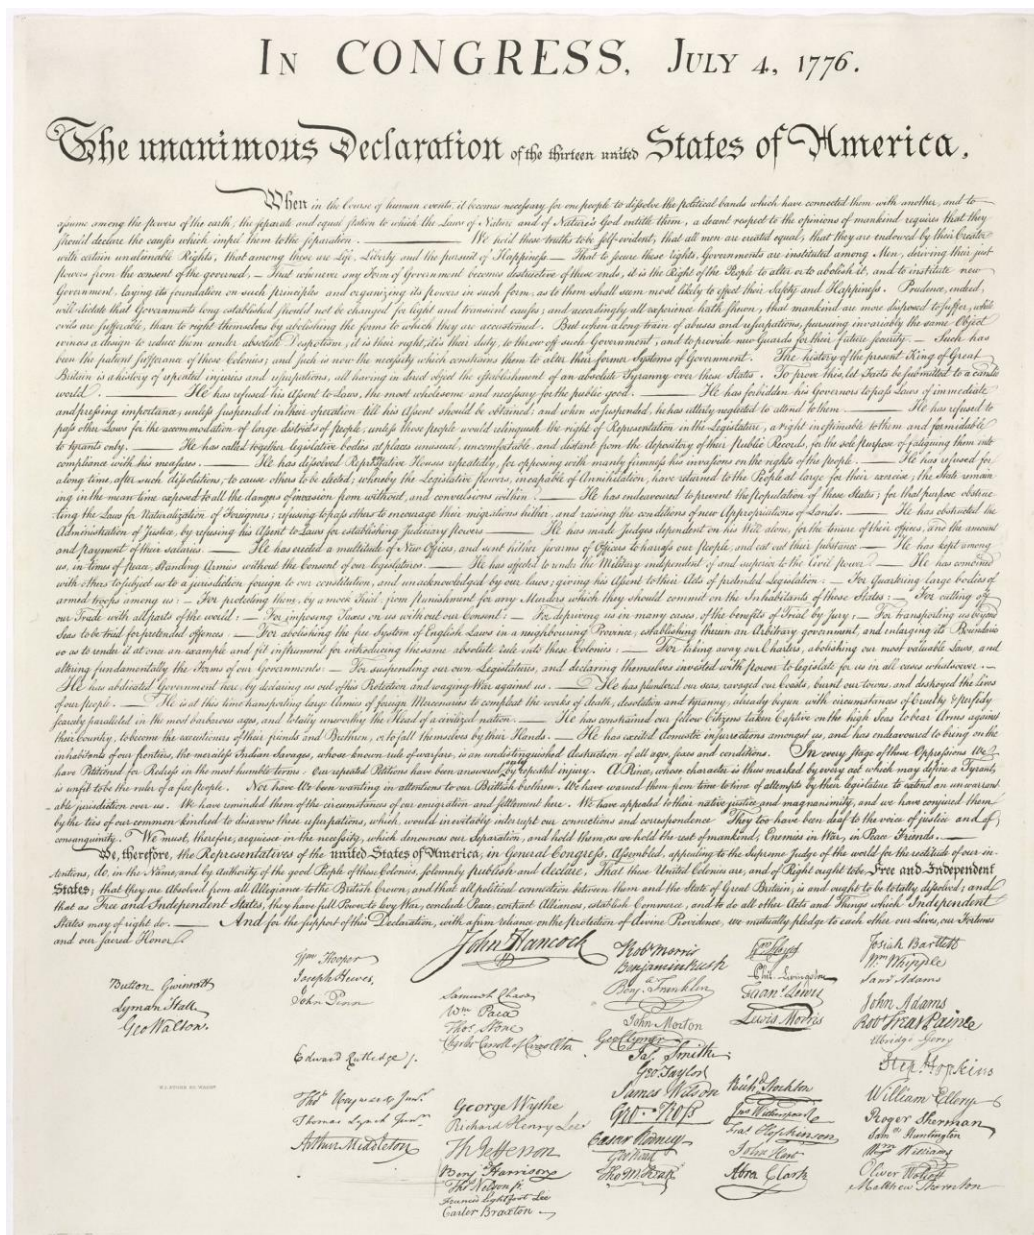 IN CONGRESS, JULY 4, 1776.
The unanimous Declaration of the thirteen united States of America,
When in the Course of human events, it becomes necessary for one people to dissolve the political bands which have connected them with another, and to
assume among the powers of the earth, the separate and equal station to which the Laws of Nature and of Nature's God entitle them, a decent respect to the opinions of mankind requires that they
should declare the causes which impel them to the separation. — We hold these truths to be self-evident, that all men are created equal, that they are endowed by their Creator
with certain unalienable Rights, that among these are Life, Liberty and the pursuit of Happiness.— That to secure these rights, Governments are instituted among Men, deriving their just
powers from the consent of the governed, — That whenever any Form of Government becomes destructive of these ends, it is the Right of the People to alter or to abolish it, and to institute new
Government, laying its foundation on such principles and organizing its powers in such form, as to them shall seem most likely to effect their Safety and Happiness. Prudence, indeed,
will dictate that Governments long established should not be changed for light and transient causes; and accordingly all experience hath shewn, that mankind are more disposed to suffer, while
evils are sufferable, than to right themselves by abolishing the forms to which they are accustomed. But when a long train of abuses and usurpations, pursuing invariably the same Object
evinces a design to reduce them under absolute Despotism, it is their right, it is their duty, to throw off such Government, and to provide new Guards for their future security. — Such has
been the patient sufferance of these Colonies; and such is now the necessity which constrains them to alter their former Systems of Government. The history of the present King of Great
Britain is a history of repeated injuries and usurpations, all having in direct object the establishment of an absolute Tyranny over these States. To prove this, let Facts be submitted to a candid
world. — He has refused his Assent to Laws, the most wholesome and necessary for the public good. — He has forbidden his Governors to pass Laws of immediate
and pressing importance, unless suspended in their operation till his Assent should be obtained; and when so suspended, he has utterly neglected to attend to them. — He has refused to
pass other Laws for the accommodation of large districts of people, unless those people would relinquish the right of Representation in the Legislature, a right inestimable to them and formidable
to tyrants only. — He has called together legislative bodies at places unusual, uncomfortable, and distant from the depository of their public Records, for the sole purpose of fatiguing them into
compliance with his measures. — He has dissolved Representative Houses repeatedly, for opposing with manly firmness his invasions on the rights of the people. — He has refused for
a long time, after such dissolutions, to cause others to be elected; whereby the Legislative powers, incapable of Annihilation, have returned to the People at large for their exercise; the State remain
ing in the mean time exposed to all the dangers of invasion from without, and convulsions within. — He has endeavoured to prevent the population of these States; for that purpose obstruc
ting the Laws for Naturalization of Foreigners; refusing to pass others to encourage their migrations hither, and raising the conditions of new Appropriations of Lands. — He has obstructed the
Administration of Justice, by refusing his Assent to Laws for establishing Judiciary powers. — He has made Judges dependent on his Will alone, for the tenure of their offices, and the amount
and payment of their salaries. — He has erected a multitude of New Offices, and sent hither swarms of Officers to harrass our people, and eat out their substance. — He has kept among
us, in times of peace, Standing Armies without the Consent of our legislatures. — He has affected to render the Military independent of and superior to the Civil power. — He has combined
with others to subject us to a jurisdiction foreign to our constitution, and unacknowledged by our laws; giving his Assent to their Acts of pretended Legislation: — For Quartering large bodies of
armed troops among us: — For protecting them, by a mock Trial, from punishment for any Murders which they should commit on the Inhabitants of these States: — For cutting off
our Trade with all parts of the world: — For imposing Taxes on us without our Consent: — For depriving us in many cases, of the benefits of Trial by Jury: — For transporting us beyond
Seas to be tried for pretended offences: — For abolishing the free System of English Laws in a neighbouring Province, establishing therein an Arbitrary government, and enlarging its Boundaries
so as to render it at once an example and fit instrument for introducing the same absolute rule into these Colonies: — For taking away our Charters, abolishing our most valuable Laws, and
altering fundamentally the Forms of our Governments: — For suspending our own Legislatures, and declaring themselves invested with power to legislate for us in all cases whatsoever. —
He has abdicated Government here, by declaring us out of his Protection and waging War against us. — He has plundered our seas, ravaged our Coasts, burnt our towns, and destroyed the lives
of our people. — He is at this time transporting large Armies of foreign Mercenaries to compleat the works of death, desolation and tyranny, already begun with circumstances of Cruelty & perfidy
scarcely paralleled in the most barbarous ages, and totally unworthy the Head of a civilized nation. — He has constrained our fellow Citizens taken Captive on the high Seas to bear Arms against
their Country, to become the executioners of their friends and Brethren, or to fall themselves by their Hands. — He has excited domestic insurrections amongst us, and has endeavoured to bring on the
inhabitants of our frontiers, the merciless Indian Savages, whose known rule of warfare, is an undistinguished destruction of all ages, sexes and conditions. In every stage of these Oppressions We
have Petitioned for Redress in the most humble terms: Our repeated Petitions have been answered only by repeated injury. A Prince, whose character is thus marked by every act which may define a Tyrant,
is unfit to be the ruler of a free people. Nor have We been wanting in attentions to our Brittish brethren. We have warned them from time to time of attempts by their legislature to extend an unwarrant
able jurisdiction over us. We have reminded them of the circumstances of our emigration and settlement here. We have appealed to their native justice and magnanimity, and we have conjured them
by the ties of our common kindred to disavow these usurpations, which, would inevitably interrupt our connections and correspondence. They too have been deaf to the voice of justice and of
consanguinity. We must, therefore, acquiesce in the necessity, which denounces our Separation, and hold them, as we hold the rest of mankind, Enemies in War, in Peace Friends. —
We, therefore, the Representatives of the united States of America, in General Congress, Assembled, appealing to the Supreme Judge of the world for the rectitude of our in-
tentions, do, in the Name, and by Authority of the good People of these Colonies, solemnly publish and declare, That these United Colonies are, and of Right ought to be Free and Independent
States; that they are Absolved from all Allegiance to the British Crown, and that all political connection between them and the State of Great Britain, is and ought to be totally dissolved; and
that as Free and Independent States, they have full Power to levy War, conclude Peace, contract Alliances, establish Commerce, and to do all other Acts and Things which Independent
States may of right do. — And for the support of this Declaration, with a firm reliance on the protection of divine Providence, we mutually pledge to each other our Lives, our Fortunes
and our sacred Honor.
Button Gwinnett
Lyman Hall
Geo Walton.
Wm Hooper
Joseph Hewes,
John Penn
Edward Rutledge /.
Thos Heyward Junr.
Thomas Lynch Junr.
Arthur Middleton
John Hancock
Samuel Chase
Wm Paca
Thos Stone
Charles Carroll of Carrollton
George Wythe
Richard Henry Lee
Th Jefferson
Benj Harrison
Thos Nelson jr.
Francis Lightfoot Lee
Carter Braxton
Robt Morris
Benjamin Rush
Benj Franklin
John Morton
Geo Clymer
Jas Smith
Geo Taylor
James Wilson
Geo. Ross
Caesar Rodney
Geo Read
Tho M:Kean
Wm Floyd
Phil. Livingston
Frans Lewis
Lewis Morris
Richd Stockton
Jno Witherspoon
Fras Hopkinson
John Hart
Abra Clark
Josiah Bartlett
Wm Whipple
Saml Adams
John Adams
Robt Treat Paine
Elbridge Gerry
Step. Hopkins
William Ellery
Roger Sherman
Saml Huntington
Wm Williams
Oliver Wolcott
Matthew Thornton